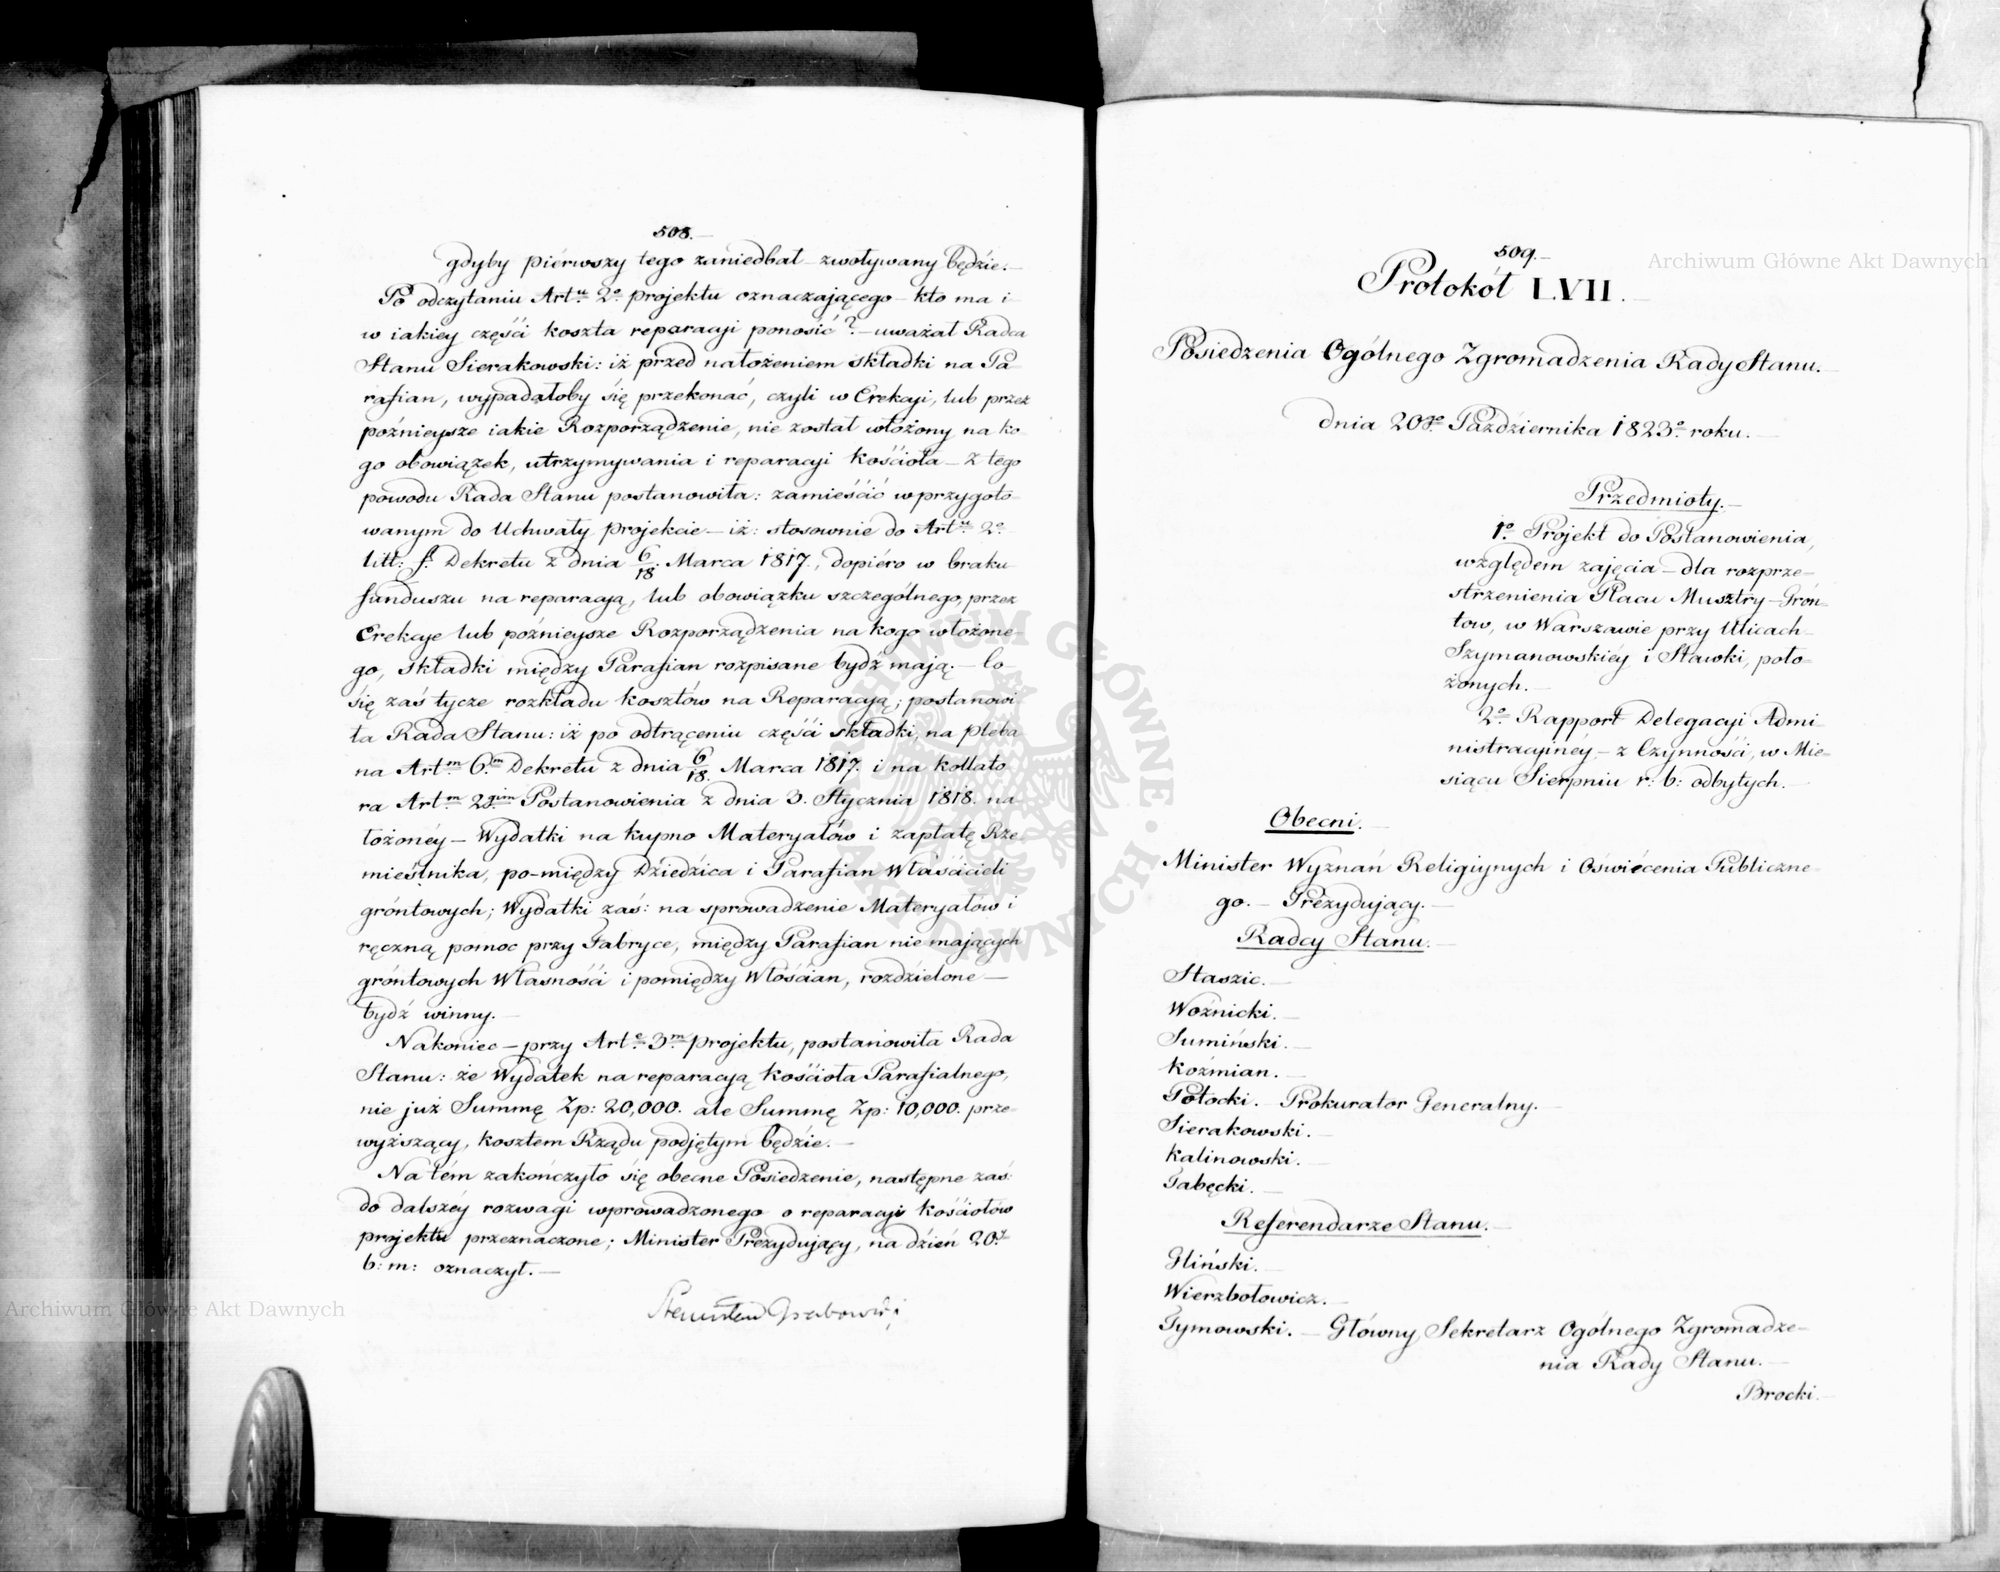 508.
gdyby pierwszy tego zaniedbał – zwoływany będzie. –
Po odczytaniu Art.u 2o projektu oznaczającego – kto ma i
w iakiey części koszta reparacji ponosić? – uważał Radca
Stanu Sierakowski: iż przed nałożeniem składki na Pa-
rafian, wypadałoby się przekonać, czyli w Erekcyi, lub przez
poźnieysze iakie Rozporządzenie, nie został włożony na ko-
go obowiązek, utrzymywania i reparacyi Kościoła – z tego
powodu Rada Stanu postanowiła: zamieścić w przygoto-
wanym do Uchwały projekcie – iż: stosownie do Art.u 2o
litt: f. Dekretu z dnia 6/18. Marca 1817., dopiéro w braku
funduszu na reparacyą, lub obowiązku szczególnego, przez
Erekcye lub poźnieysze Rozporządzenia na kogo włożone-
go, składki między Parafian rozpisane bydź mają. – Co-
się zaś tycze rozkładu kosztów na Reparacyą; postanowi-
ła Rada Stanu: iż po odtrąceniu części składki, na pleba-
na Art.m 6.m Dekretu z dnia 6/18. Marca 1817. i na kollato-
ra Art.m 2gim Postanowienia z dnia 3. Stycznia 1818. na-
łożonéy – Wydatki na kupno Materyałów i zapłatę Rze-
mieślnika, po-między Dziedzica i Parafian Właścicieli
gróntowych; Wydatki zaś: na sprowadzenie Materyałów i
ręczną pomoc przy Fabryce, między Parafian nie mających
gróntowych Własności i pomiędzy Włościan, rozdzielone –
bydź winny. –
Nakoniec – przy Art.e 3.m projektu, postanowiła Rada
Stanu: że Wydatek na reparacyą Kościoła Parafialnego,
nie już Summę Zp: 20,000. ale Summę Zp: 10,000. prze-
wyższący, kosztem Rządu podjętym będzie. –
Na tém zakończyło się obecne Posiedzenie, następne zaś:
do dalszéy rozwagi wprowadzonego o reparacyi Kościołów
projektu przeznaczone; Minister Prezydujący, na dzień 20.
b: m: oznaczył. –
Stanisław Grabowski
509. –
Protokół LVII. –
Posiedzenia Ogólnego Zgromadzenia Rady Stanu. –
dnia 20go Października 1823o roku. –
Przedmioty. –
1o Projekt do Postanowienia,
względem zajęcia – dla rozprze-
strzenienia Placu Musztry – Grón-
tow, w Warszawie przy Ulicach
Szymanowskiéy i Stawki, poło-
żonych. –
2o Rapport Delegacyi Admi-
nistracyinéy – z Czynności, w Mie-
siącu Sierpniu r: b: odbytych. –
Obecni. –
Minister Wyznań Religiynych i Oświécenia Publiczne-
go. – Prezydujący. –
Radcy Stanu. –
Staszic. –
Woźnicki. –
Sumiński. –
Koźmian. –
Potocki. – Prokurator Generalny. –
Sierakowski. –
Kalinowski. –
Łabęcki. –
Referendarze Stanu. –
Gliński. –
Wierzbołowicz. –
Tymowski. – Główny Sekretarz Ogólnego Zgromadze-
nia Rady Stanu. –
Brocki. –
Archiwum Główne Akt Dawnych
Archiwum Główne Akt Dawnych
ARCHIWUM GŁÓWNE · AKT DAWNYCH ·